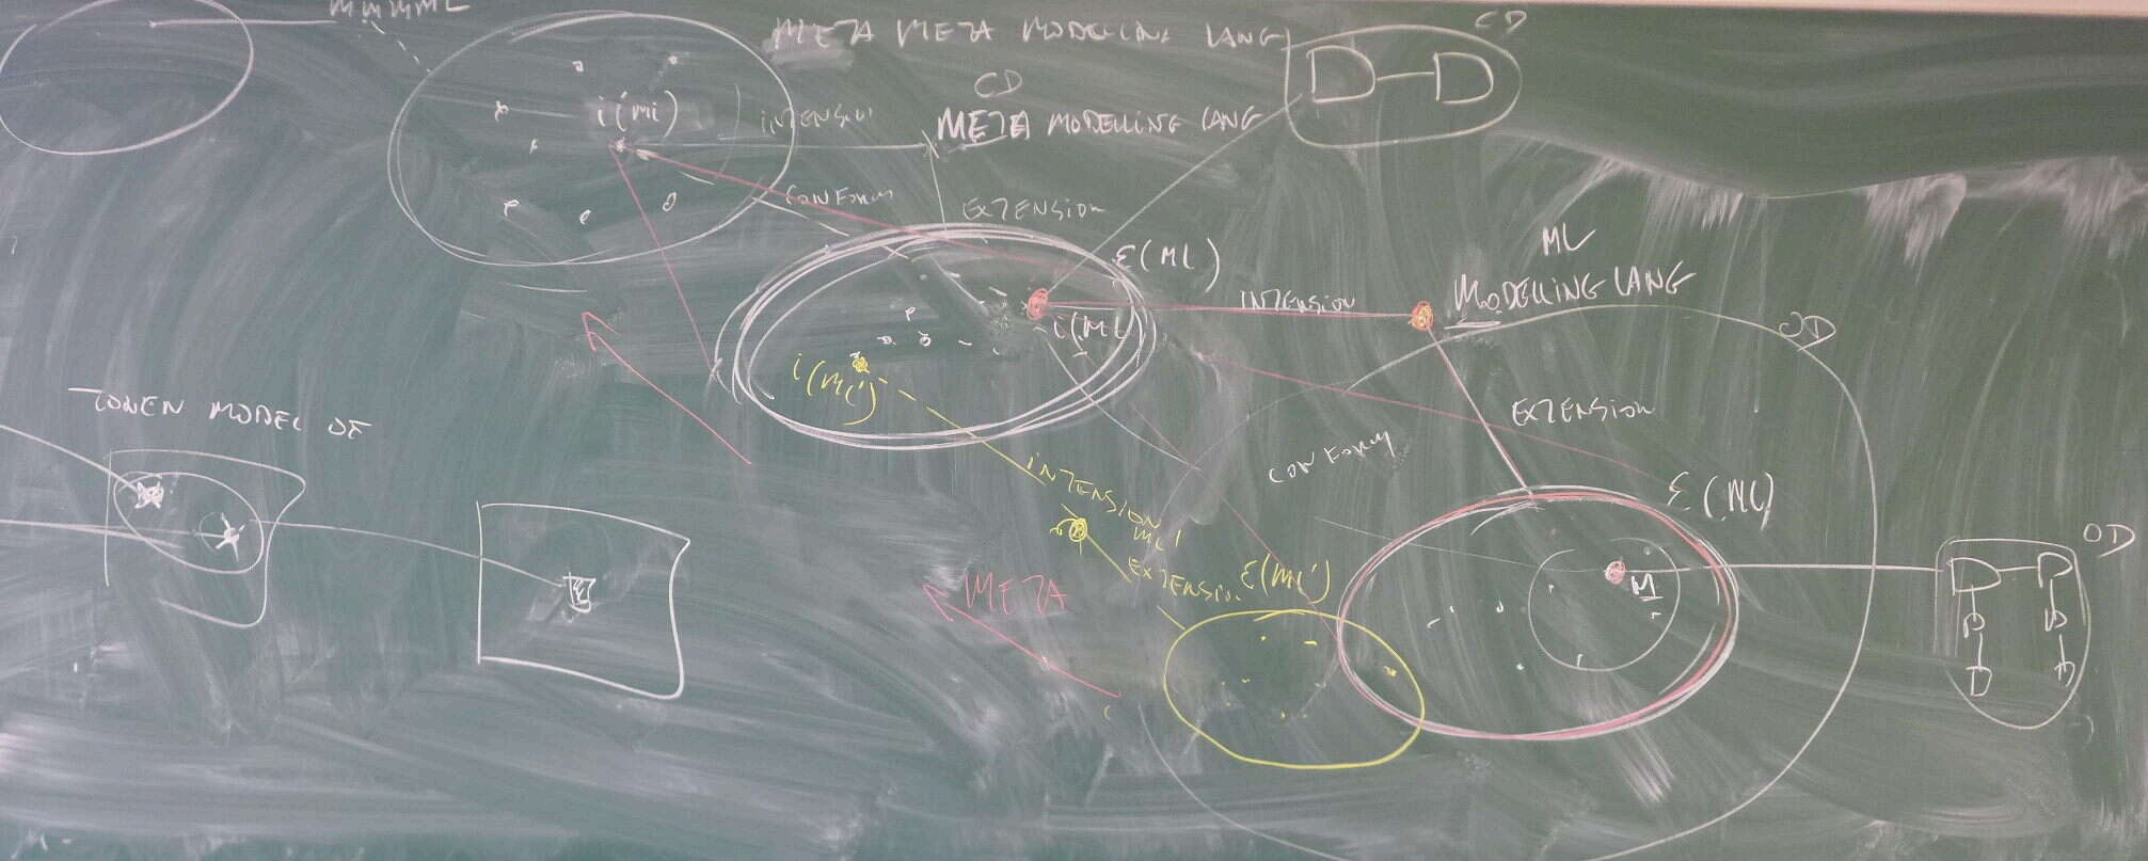 META META MODELLING LANG
CD
CD
i(ML)
INTENSION
META MODELLING LANG
CONFORM
EXTENSION
ε(ML)
ML
MODELLING LANG
INTENSION
i(ML)
OD
i(ML')
EXTENSION
CONFORM
INTENSION
ML'
EXTENSION
ε(ML')
ε(ML)
META
M
OD
MODEL OF